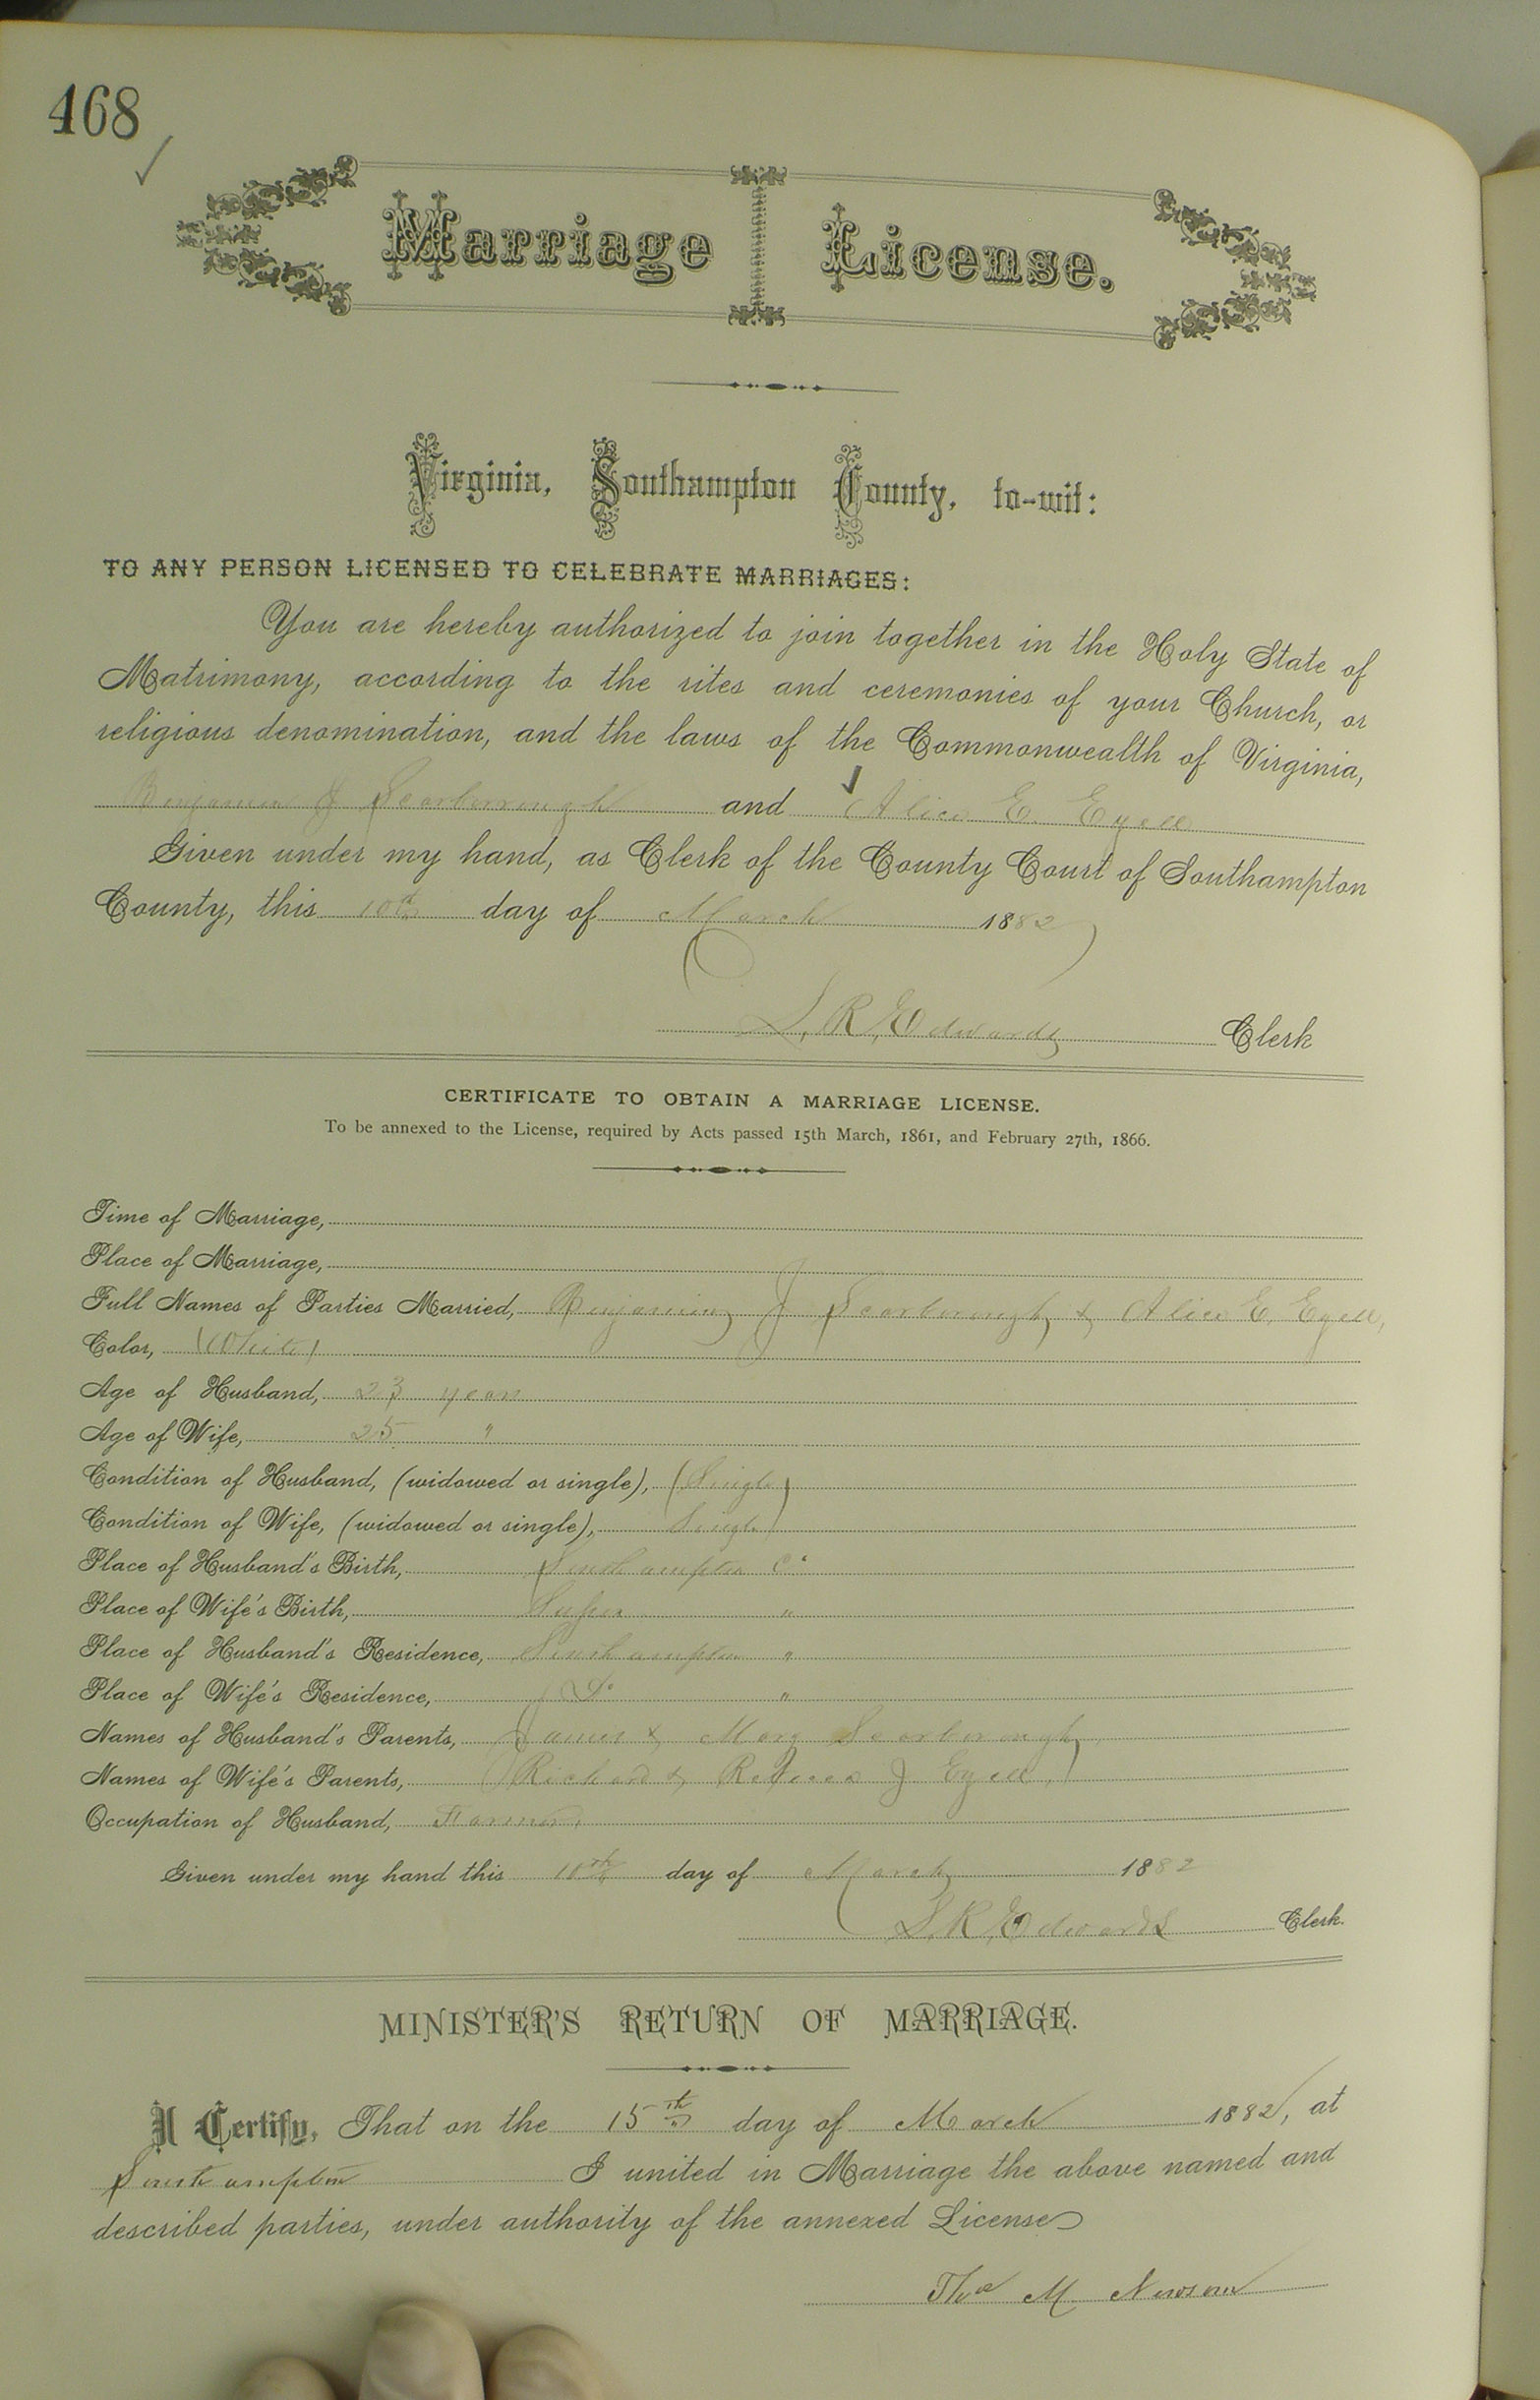 468
Marriage License.
Virginia, Southampton County, to-wit:
TO ANY PERSON LICENSED TO CELEBRATE MARRIAGES:
You are hereby authorized to join together in the Holy State of
Matrimony, according to the rites and ceremonies of your Church, or
religious denomination, and the laws of the Commonwealth of Virginia,
Benjamin J Scarborough and Alice E. Ezell
Given under my hand, as Clerk of the County Court of Southampton
County, this 10th day of March 1882
L. R. Edwards Clerk
CERTIFICATE TO OBTAIN A MARRIAGE LICENSE.
To be annexed to the License, required by Acts passed 15th March, 1861, and February 27th, 1866.
Time of Marriage,
Place of Marriage,
Full Names of Parties Married, Benjamin J Scarborough & Alice E. Ezell,
Color, (White)
Age of Husband, 23 years
Age of Wife, 25 "
Condition of Husband, (widowed or single), (Single)
Condition of Wife, (widowed or single), Single)
Place of Husband's Birth, Southampton Co
Place of Wife's Birth, "
Place of Husband's Residence, Southampton "
Place of Wife's Residence, Do "
Names of Husband's Parents, James & Mary Scarborough
Names of Wife's Parents, Richard & Rebecca J Ezell
Occupation of Husband, Farmer
Given under my hand this 10th day of March 1882
L. R. Edwards Clerk.
MINISTER'S RETURN OF MARRIAGE.
I Certify, That on the 15th day of March 1882, at
Southampton I united in Marriage the above named and
described parties, under authority of the annexed License
Thos M. Newsom